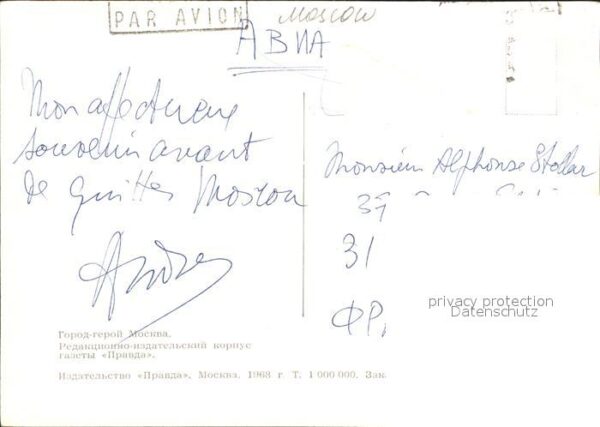 PAR AVION
Moscow
АВИА
Mon affectueux
souvenir avant
de quitter Moscou
André
Monsieur Alphonse Stollar
39
31
ФР.
privacy protection
Datenschutz
Город-герой Москва.
Редакционно-издательский корпус
газеты «Правда».
Издательство «Правда», Москва. 1968 г. Т. 1 000 000. Зак.